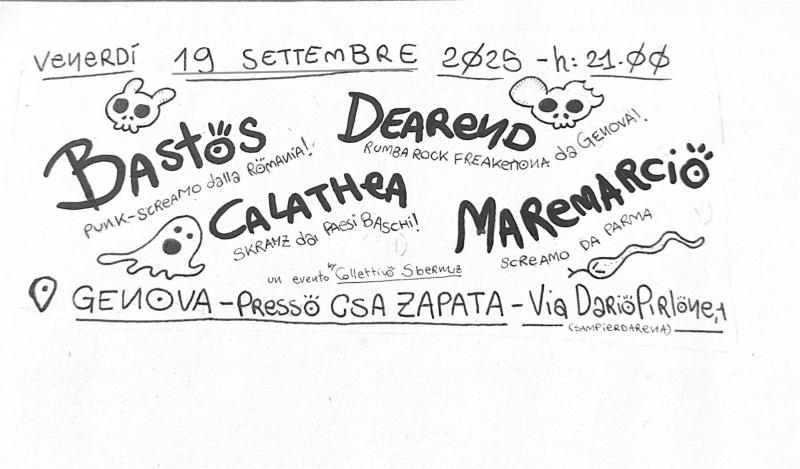 Venerdì 19 SETTEMBRE 2025 - h: 21.00
Bastös
PUNK-SCREAMO dalla RÖMANIA!
DEAREND
RUMBA ROCK FREAKENONA da GENOVA!
CALATHEA
SKRAMZ dai PAESI BASCHI!
MAREMARCIO
SCREAMO DA PARMA
un evento by Collettivo Sbernuz
GENOVA - PRESSÖ CSA ZAPATA - Via DARIÖ PIRLÖNE,1
(SAMPIERDARENA)